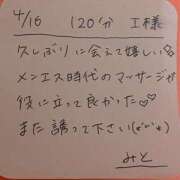 4/16 120分 I様
久しぶりに会えて嬉しい
メンエス時代のマッサージが
役に立って良かった♡♡
また誘って下さい(*ˊᵕˋ*)
みと